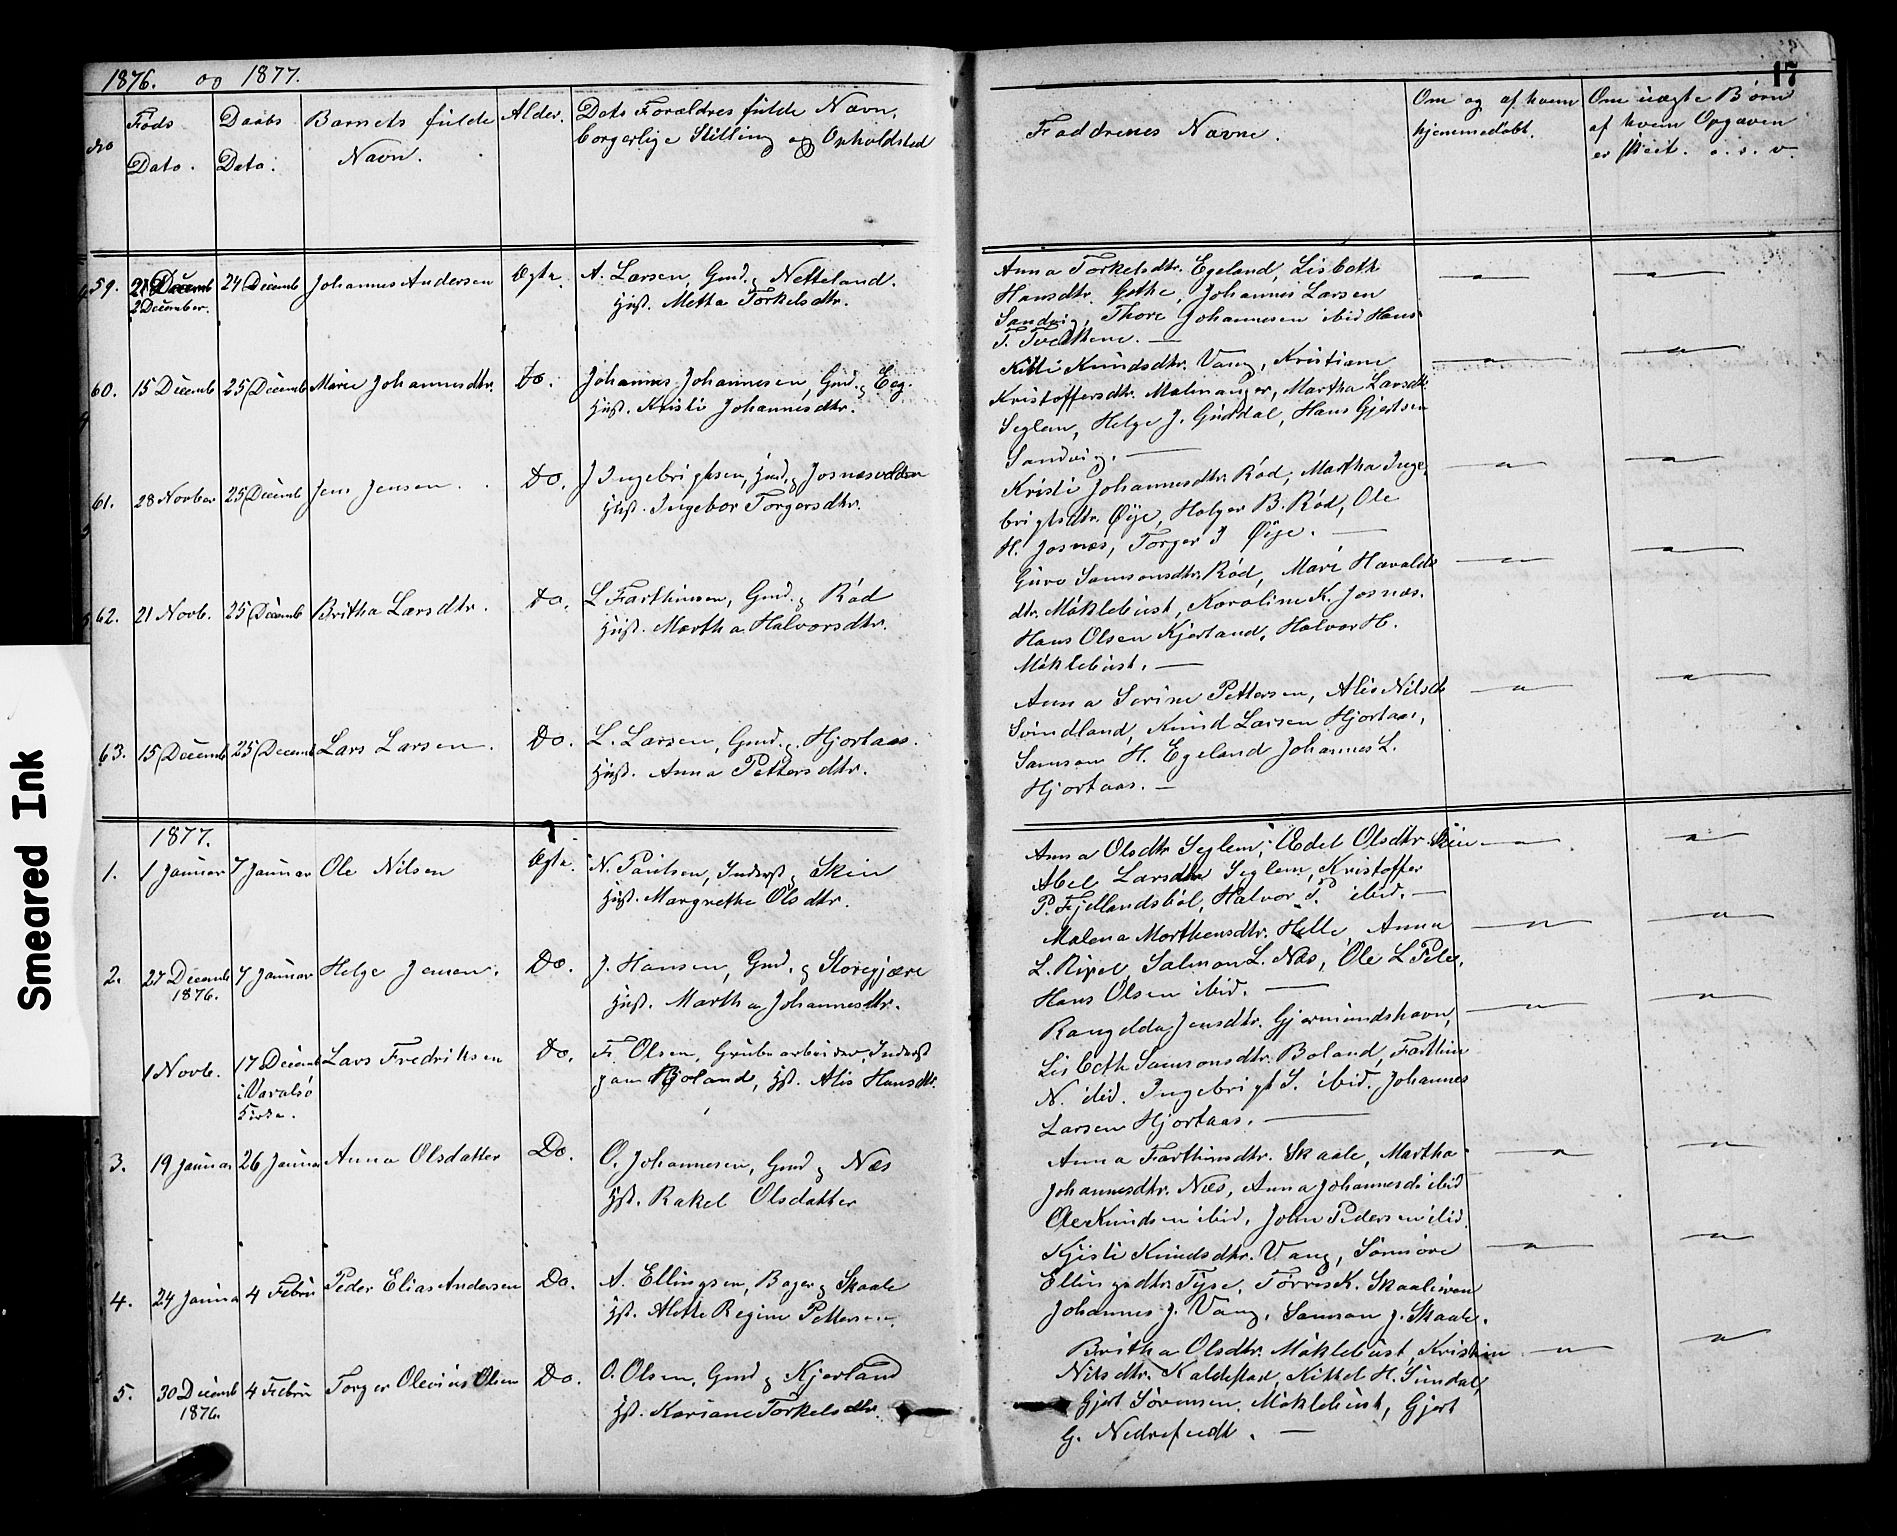 1876. og 1877.
17
No
Føds Dato.
Daabs Dato.
Barnets fulde Navn.
Alder.
Dets Forældres fulde Navn, borgerlige Stilling og Opholdsted
Faddrenes Navne.
Om og af hvem hjemmedøbt.
Om uægte Børn af hvem Opgaven er skeet. o. s. v.
59. 2 December. 24 Decemb Johannes Andersen Ægte. A. Larsen, Gmd. Netteland.
Hust. Metta Torkelsdtr.
Anna Torkelsdtr. Egeland, Lisbeth
Hansdtr. Gethe, Johannes Larsen
Sandvig, Thore Johannesen ibid Hans
T. Tveitene. —
60. 15 Decemb 25 Decemb Marie Johannesdtr. Do. Johannes Johannesen, Gmd. Eeg.
Hust. Kristi Johannesdtr.
Kitti Knudsdtr. Vang, Kristiane
Kristoffersdtr. Malmanger, Martha Larsdtr.
Seglem, Helge J. Guddal, Hans Gjertsen
Sandvig. —
61. 28 Novber 25 Decemb Jens Jensen. Do. J Ingebrigtsen, Hmd. Josnæsvolden
Hust. Ingebor Torgersdtr.
Kristi Johannesdtr. Rød, Martha Inge-
brigtsdtr. Øye, Holger B. Rød, Ole
H. Josnæs, Torger I Øye. —
62. 21 Novb. 25 Decemb Britha Larsdtr. Do. L Farthinsen, Gmd. Rød
Hust. Martha Halvorsdtr.
Guro Samsonsdtr. Rød, Mari Havalds
dtr. Møklebust, Karoline K. Josnæs.
Hans Olsen Kjerland, Halvor H.
Møklebust. —
63. 15 Decemb 25 Decemb Lars Larsen. Do. L. Larsen, Gmd. Hjortaas.
Hust. Anna Pettersdtr.
Anna Serine Pettersen, Alis Nilsdtr
Svindland, Knud Larsen Hjortaas,
Samson H. Egeland Johannes L.
Hjortaas. —
1877.
1. 1 Januar 7 Januar Ole Nilsen Ægte. N. Paulsen, Inderst, Skein
Hust. Margrethe Olsdtr.
Anna Olsdtr Seglem, Aedel Olsdtr Skein
Abel Larsdtr Seglem, Kristoffer
P. Fjellandsbøl, Halvor P. ibid. —
2. 27 Decemb 1876. 7 Januar Helge Jensen. Do. J. Hansen, Gmd. Storegjære
Hust. Martha Johannesdtr.
Malena Morthensdtr. Helle, Anna
L. Ripel, Salmon L. Næs, Ole L Pile,
Hans Olsen ibid. —
1 Novb. 17 Decemb i Varalsø Kirke. Lars Fredriksen Do. F. Olsen, Grubearbeider, Inderst
paa Boland, Hst. Alis Hansdtr.
Rangelda Jensdtr. Gjermundshavn,
Lisbeth Samsonsdtr. Boland, Farthin
N. ibid. Ingebrigt S. ibid. Johannes
Larsen Hjortaas. —
3. 19 Januar 26 Januar Anna Olsdatter Do. O. Johannesen, Gmd Næs
Hst. Rakel Olsdatter
Anna Farthinsdtr. Skaale, Martha
Johannesdtr. Næs, Anna Johannesd. ibid
Ole Knudsen ibid, John Pedersen ibid.
4. 24 Janua 4 Febru Peder Elias Andersen Do. A. Ellingsen, Bager Skaale
Hst. Alette Regine Pettersen.
Kjisti Knudsdtr. Vang, Sønnøve
Ellingsdtr. Tyse, Tørris K. Skaalevven
Johannes J. Vang, Samson J. Skaale.
5. 30 Decemb 1876. 4 Febru Torger Olevius Olsen Do. O. Olsen, Gmd Kjerland
Hst. Kariane Torkelsdtr.
Britha Olsdtr. Møklebust, Kristin
Nilsdtr. Kaldestad, Kittel H. Sundal,
Gjert Sørensen Møklebust, Gjert
G. Nedrefuedt. —
Smeared Ink